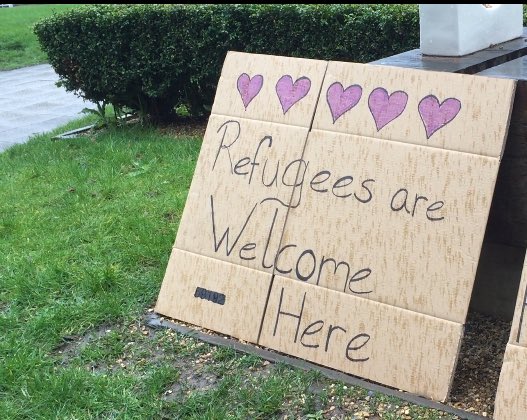 Refugees are
Welcome
Here